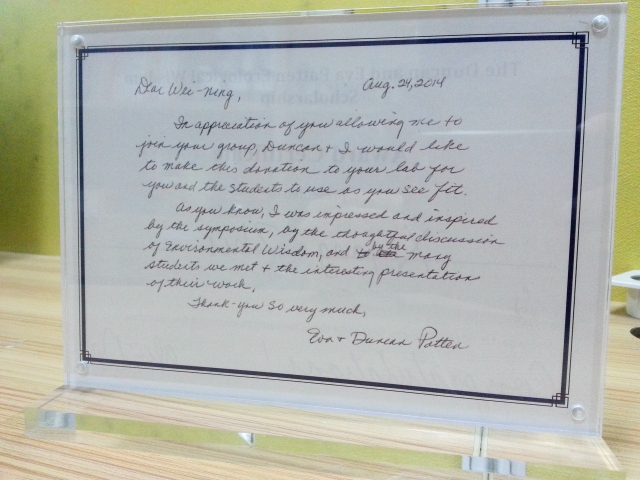 Dear Wei-Ning,
Aug. 24, 2014
In appreciation of your allowing me to
join your group, Duncan + I would like
to make this donation to your lab for
you and the students to use as you see fit.
As you know, I was impressed and inspired
by the symposium, by the thoughtful discussion
of Environmental Wisdom, and by the many
students we met + the interesting presentation
of their work.
Thank-you so very much,
Eva + Duncan Patten